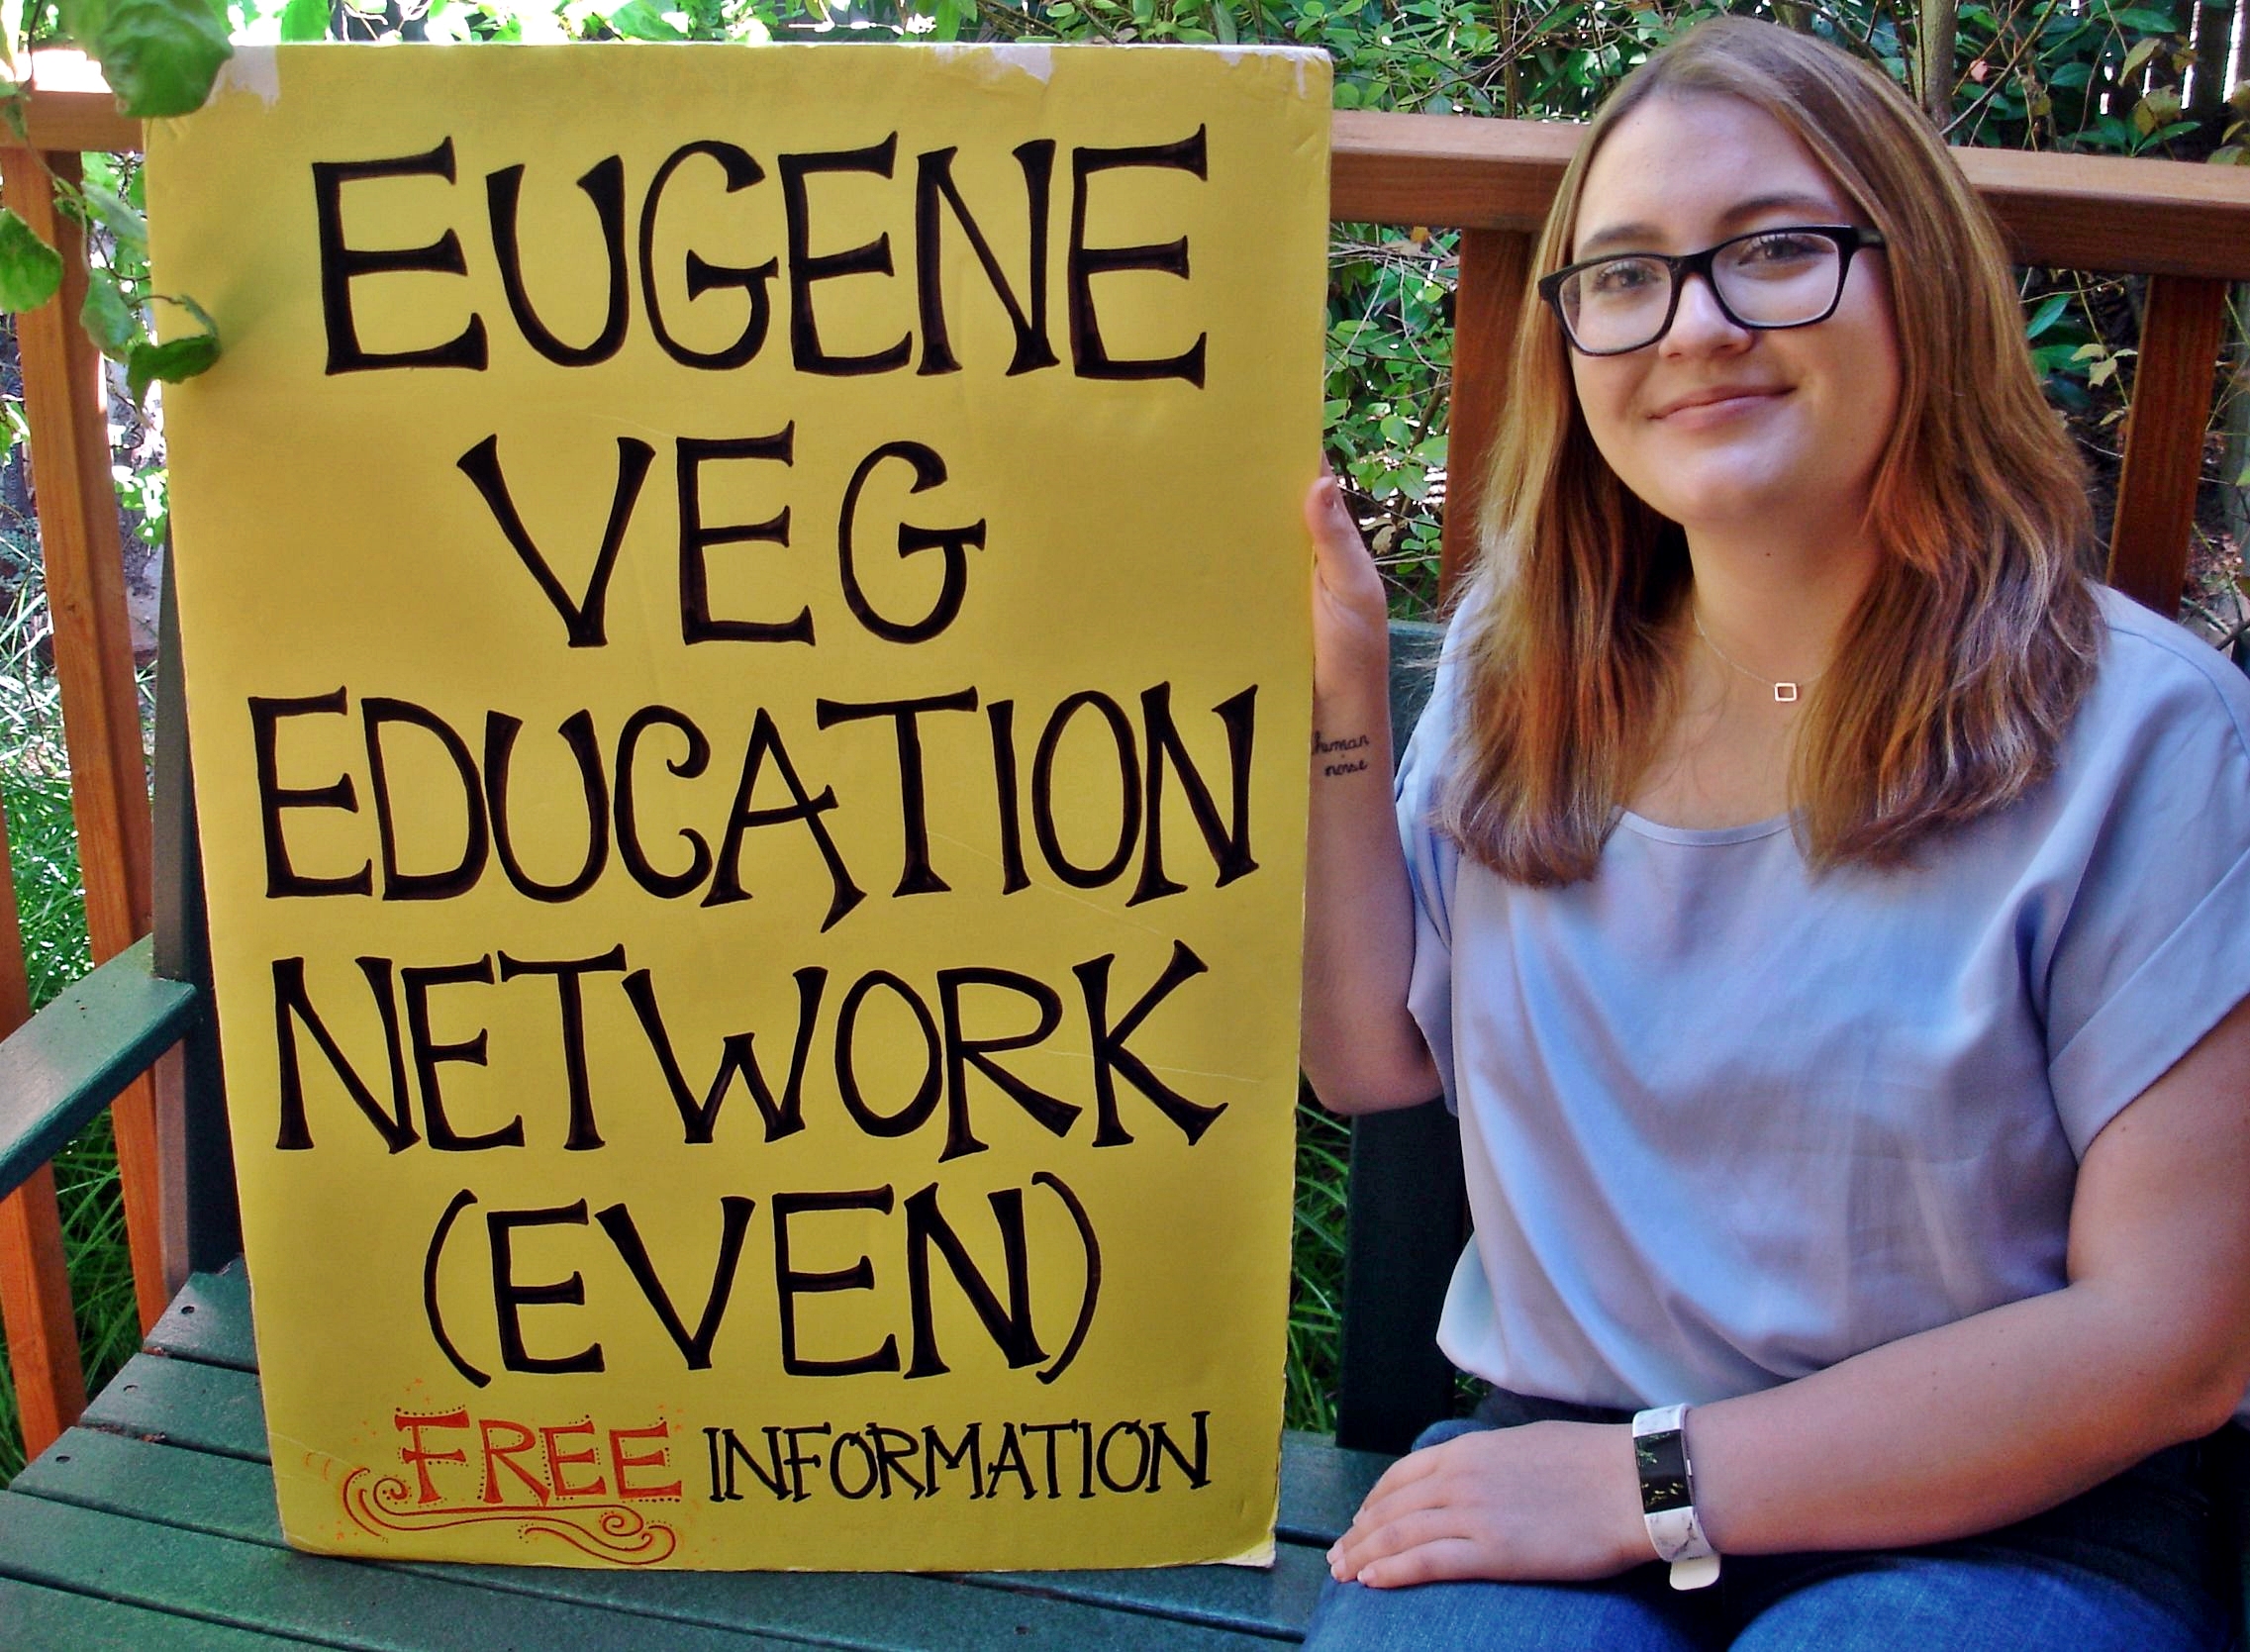 EUGENE
VEG
EDUCATION
NETWORK
(EVEN)
FREE INFORMATION
human